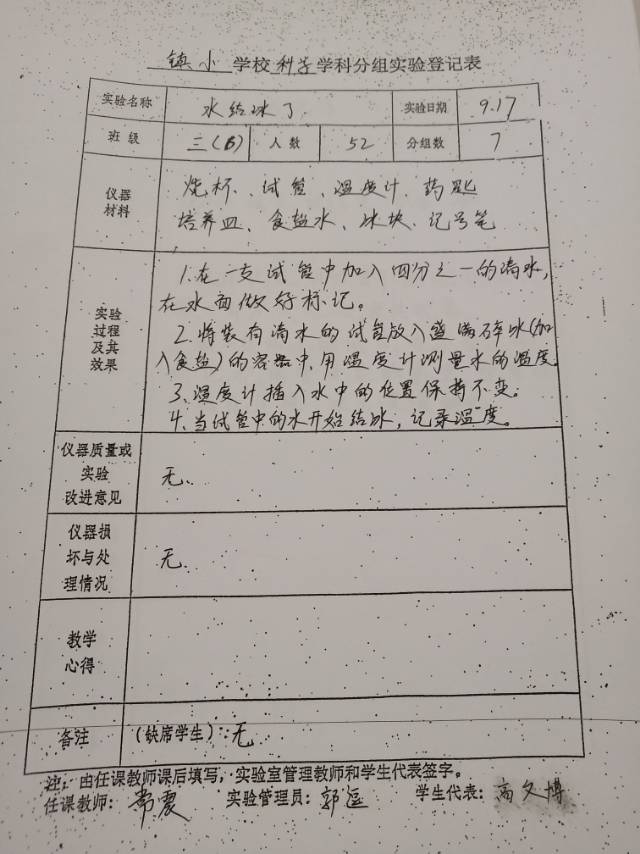 镇小学校科学学科分组实验登记表
实验名称 水结冰了 实验日期 9.17
班级 三(6) 人数 52 分组数 7
仪器
材料
烧杯、试管、温度计、药匙
培养皿、食盐水、冰块、记号笔
实验
过程
及其
效果
1.在一支试管中加入四分之一的清水,
在水面做好标记。
2.将装有清水的试管放入盛满碎冰(加
入食盐)的容器中,用温度计测量水的温度
3、温度计插入水中的位置保持不变。
4、当试管中的水开始结冰,记录温度。
仪器质量或
实验
改进意见
无.
仪器损
坏与处
理情况
无.
教学
心得
备注 (缺席学生):无
注:由任课教师课后填写,实验室管理教师和学生代表签字。
任课教师: 实验管理员: 学生代表:高文博